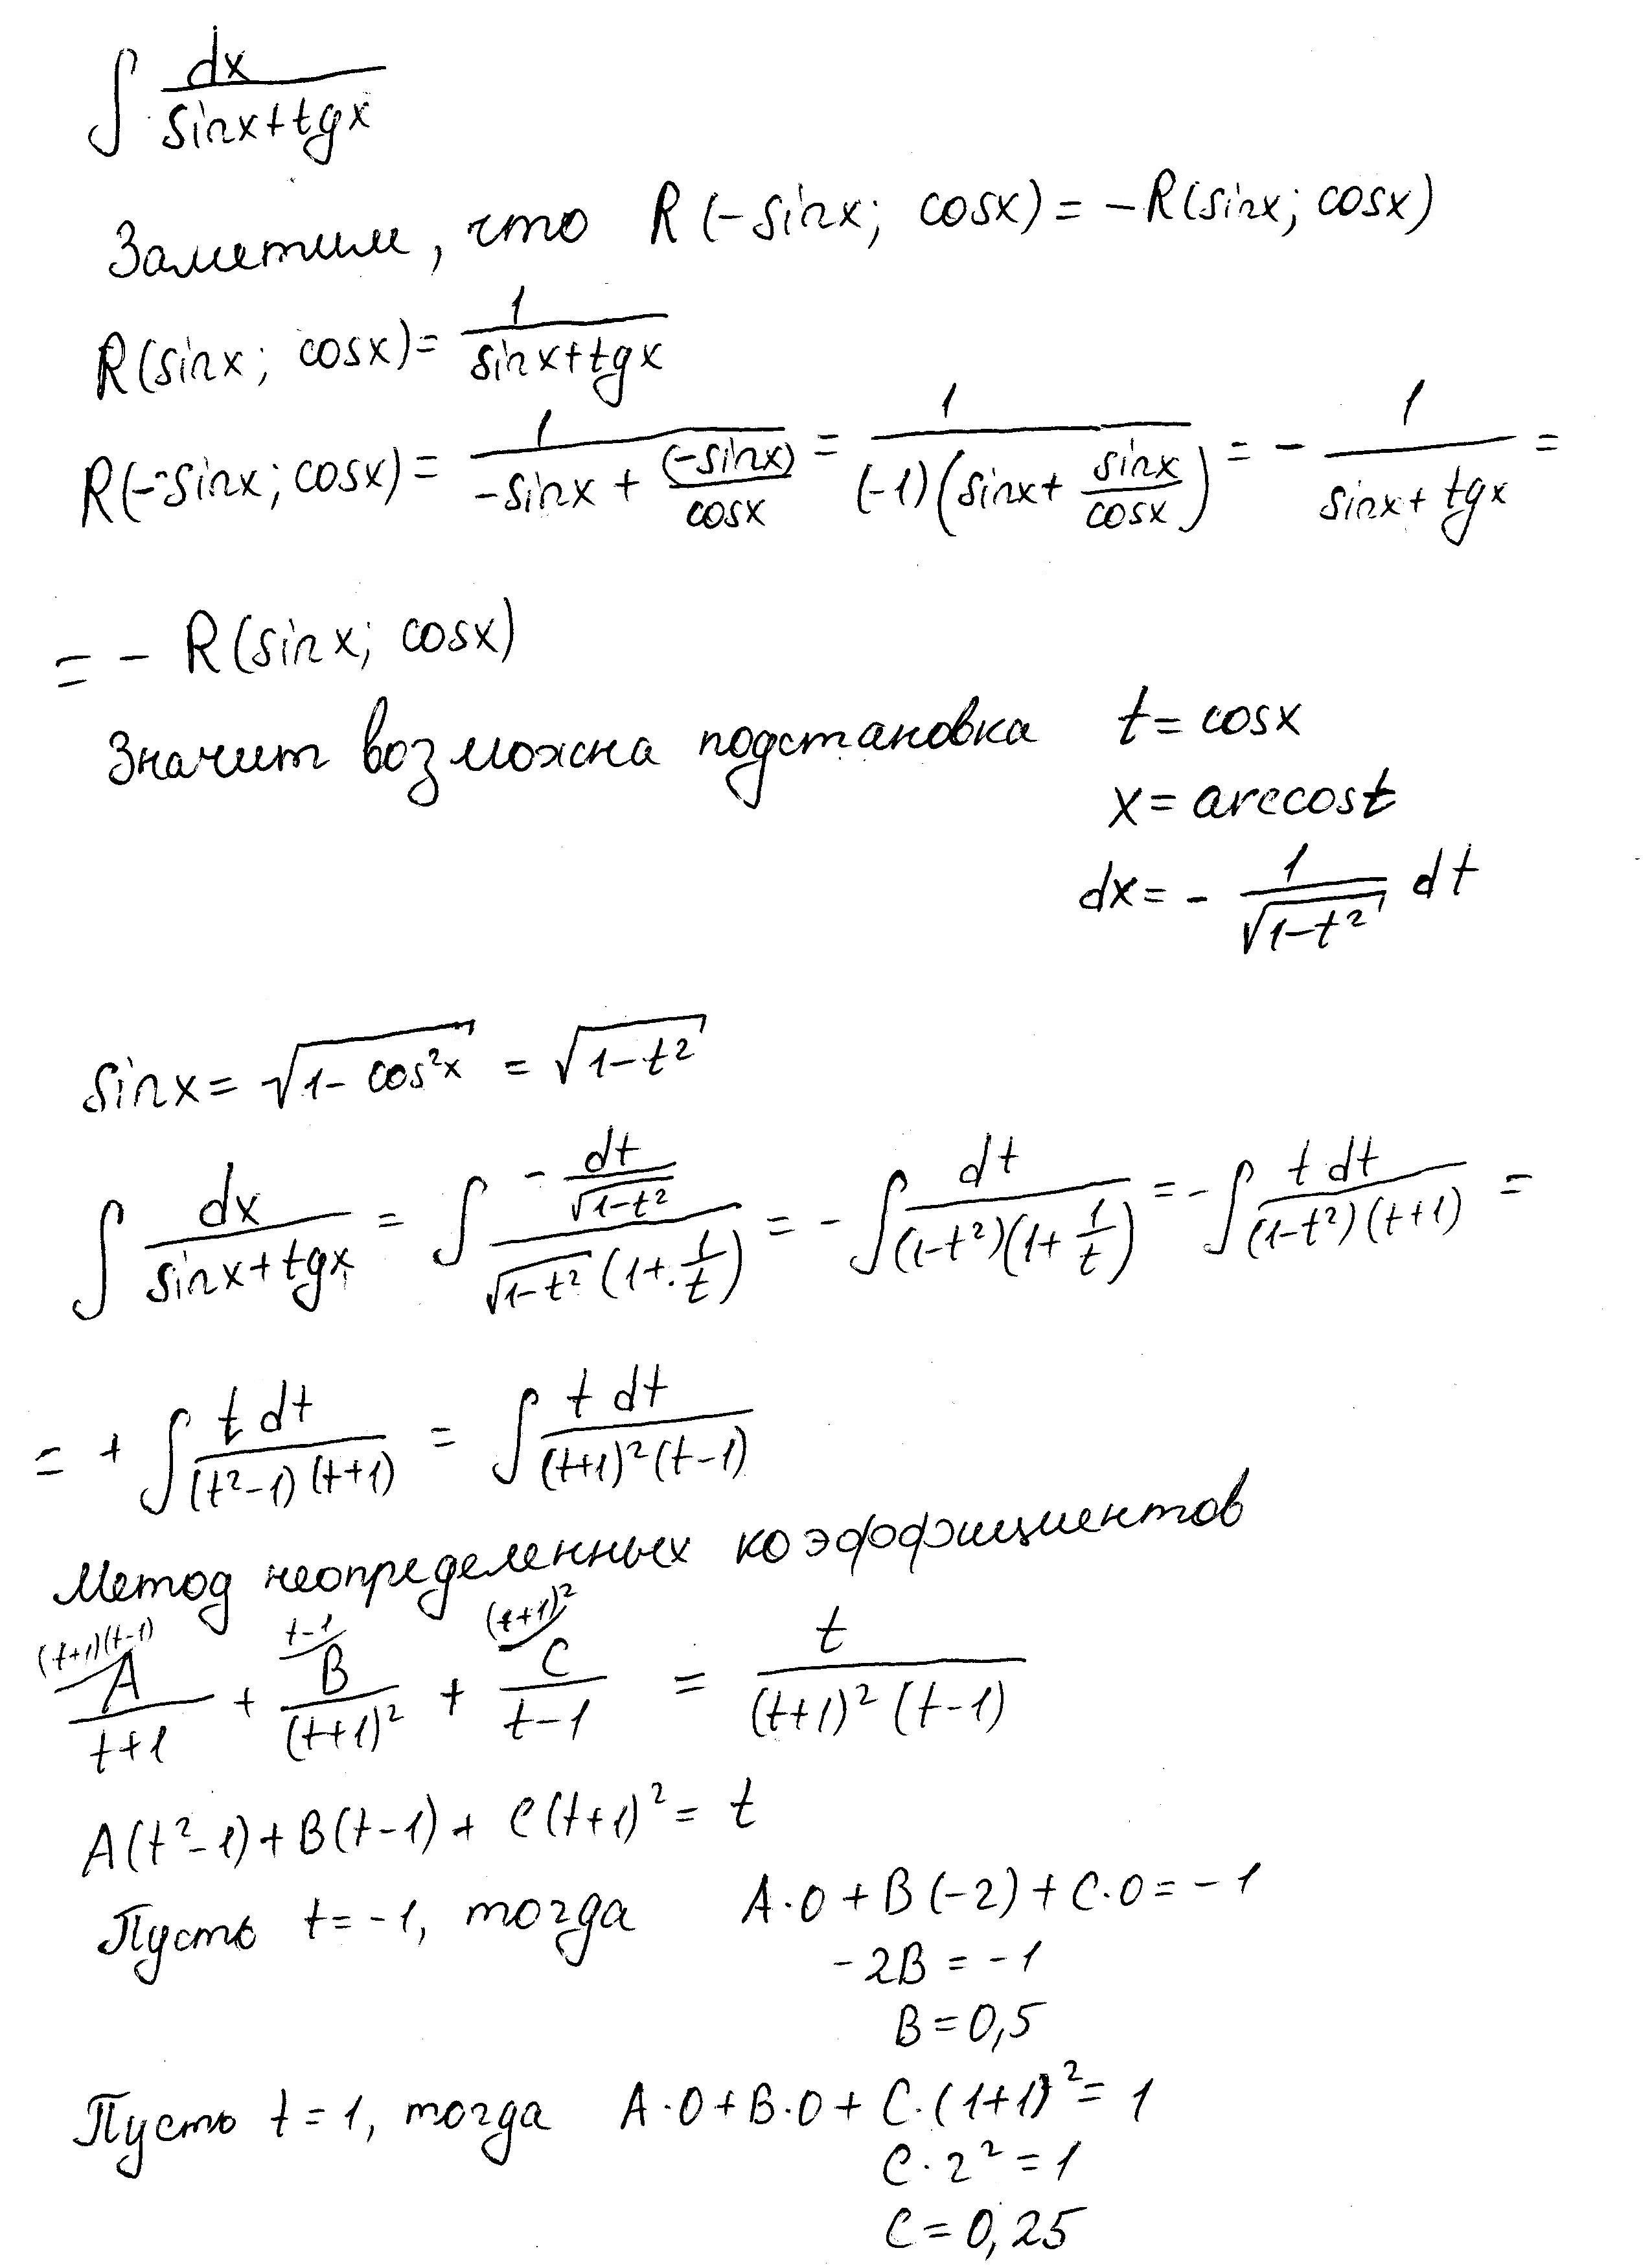 ∫ dx/(sinx+tgx)
Заметим, что R(-sinx; cosx) = -R(sinx; cosx)
R(sinx; cosx) = 1/(sinx+tgx)
R(-sinx; cosx) = 1/(-sinx + (-sinx)/cosx) = 1/((-1)(sinx + sinx/cosx)) = - 1/(sinx+tgx) =
= - R(sinx; cosx)
Значит возможна подстановка t = cosx
x = arccost
dx = - 1/√(1-t²) dt
sinx = √(1-cos²x) = √(1-t²)
∫ dx/(sinx+tgx) = ∫ (- dt/√(1-t²))/(√(1-t²) (1+1/t)) = - ∫ dt/((1-t²)(1+1/t)) = - ∫ t dt/((1-t²)(t+1)) =
= + ∫ t dt/((t²-1)(t+1)) = ∫ t dt/((t+1)²(t-1))
Метод неопределенных коэффициентов
(t+1)(t-1) t-1 (t+1)²
A/(t+1) + B/(t+1)² + C/(t-1) = t/((t+1)²(t-1))
A(t²-1)+B(t-1)+C(t+1)² = t
Пусть t=-1, тогда A·0+B(-2)+C·0=-1
-2B = -1
B = 0,5
Пусть t=1, тогда A·0+B·0+C·(1+1)²=1
C·2²=1
C=0,25